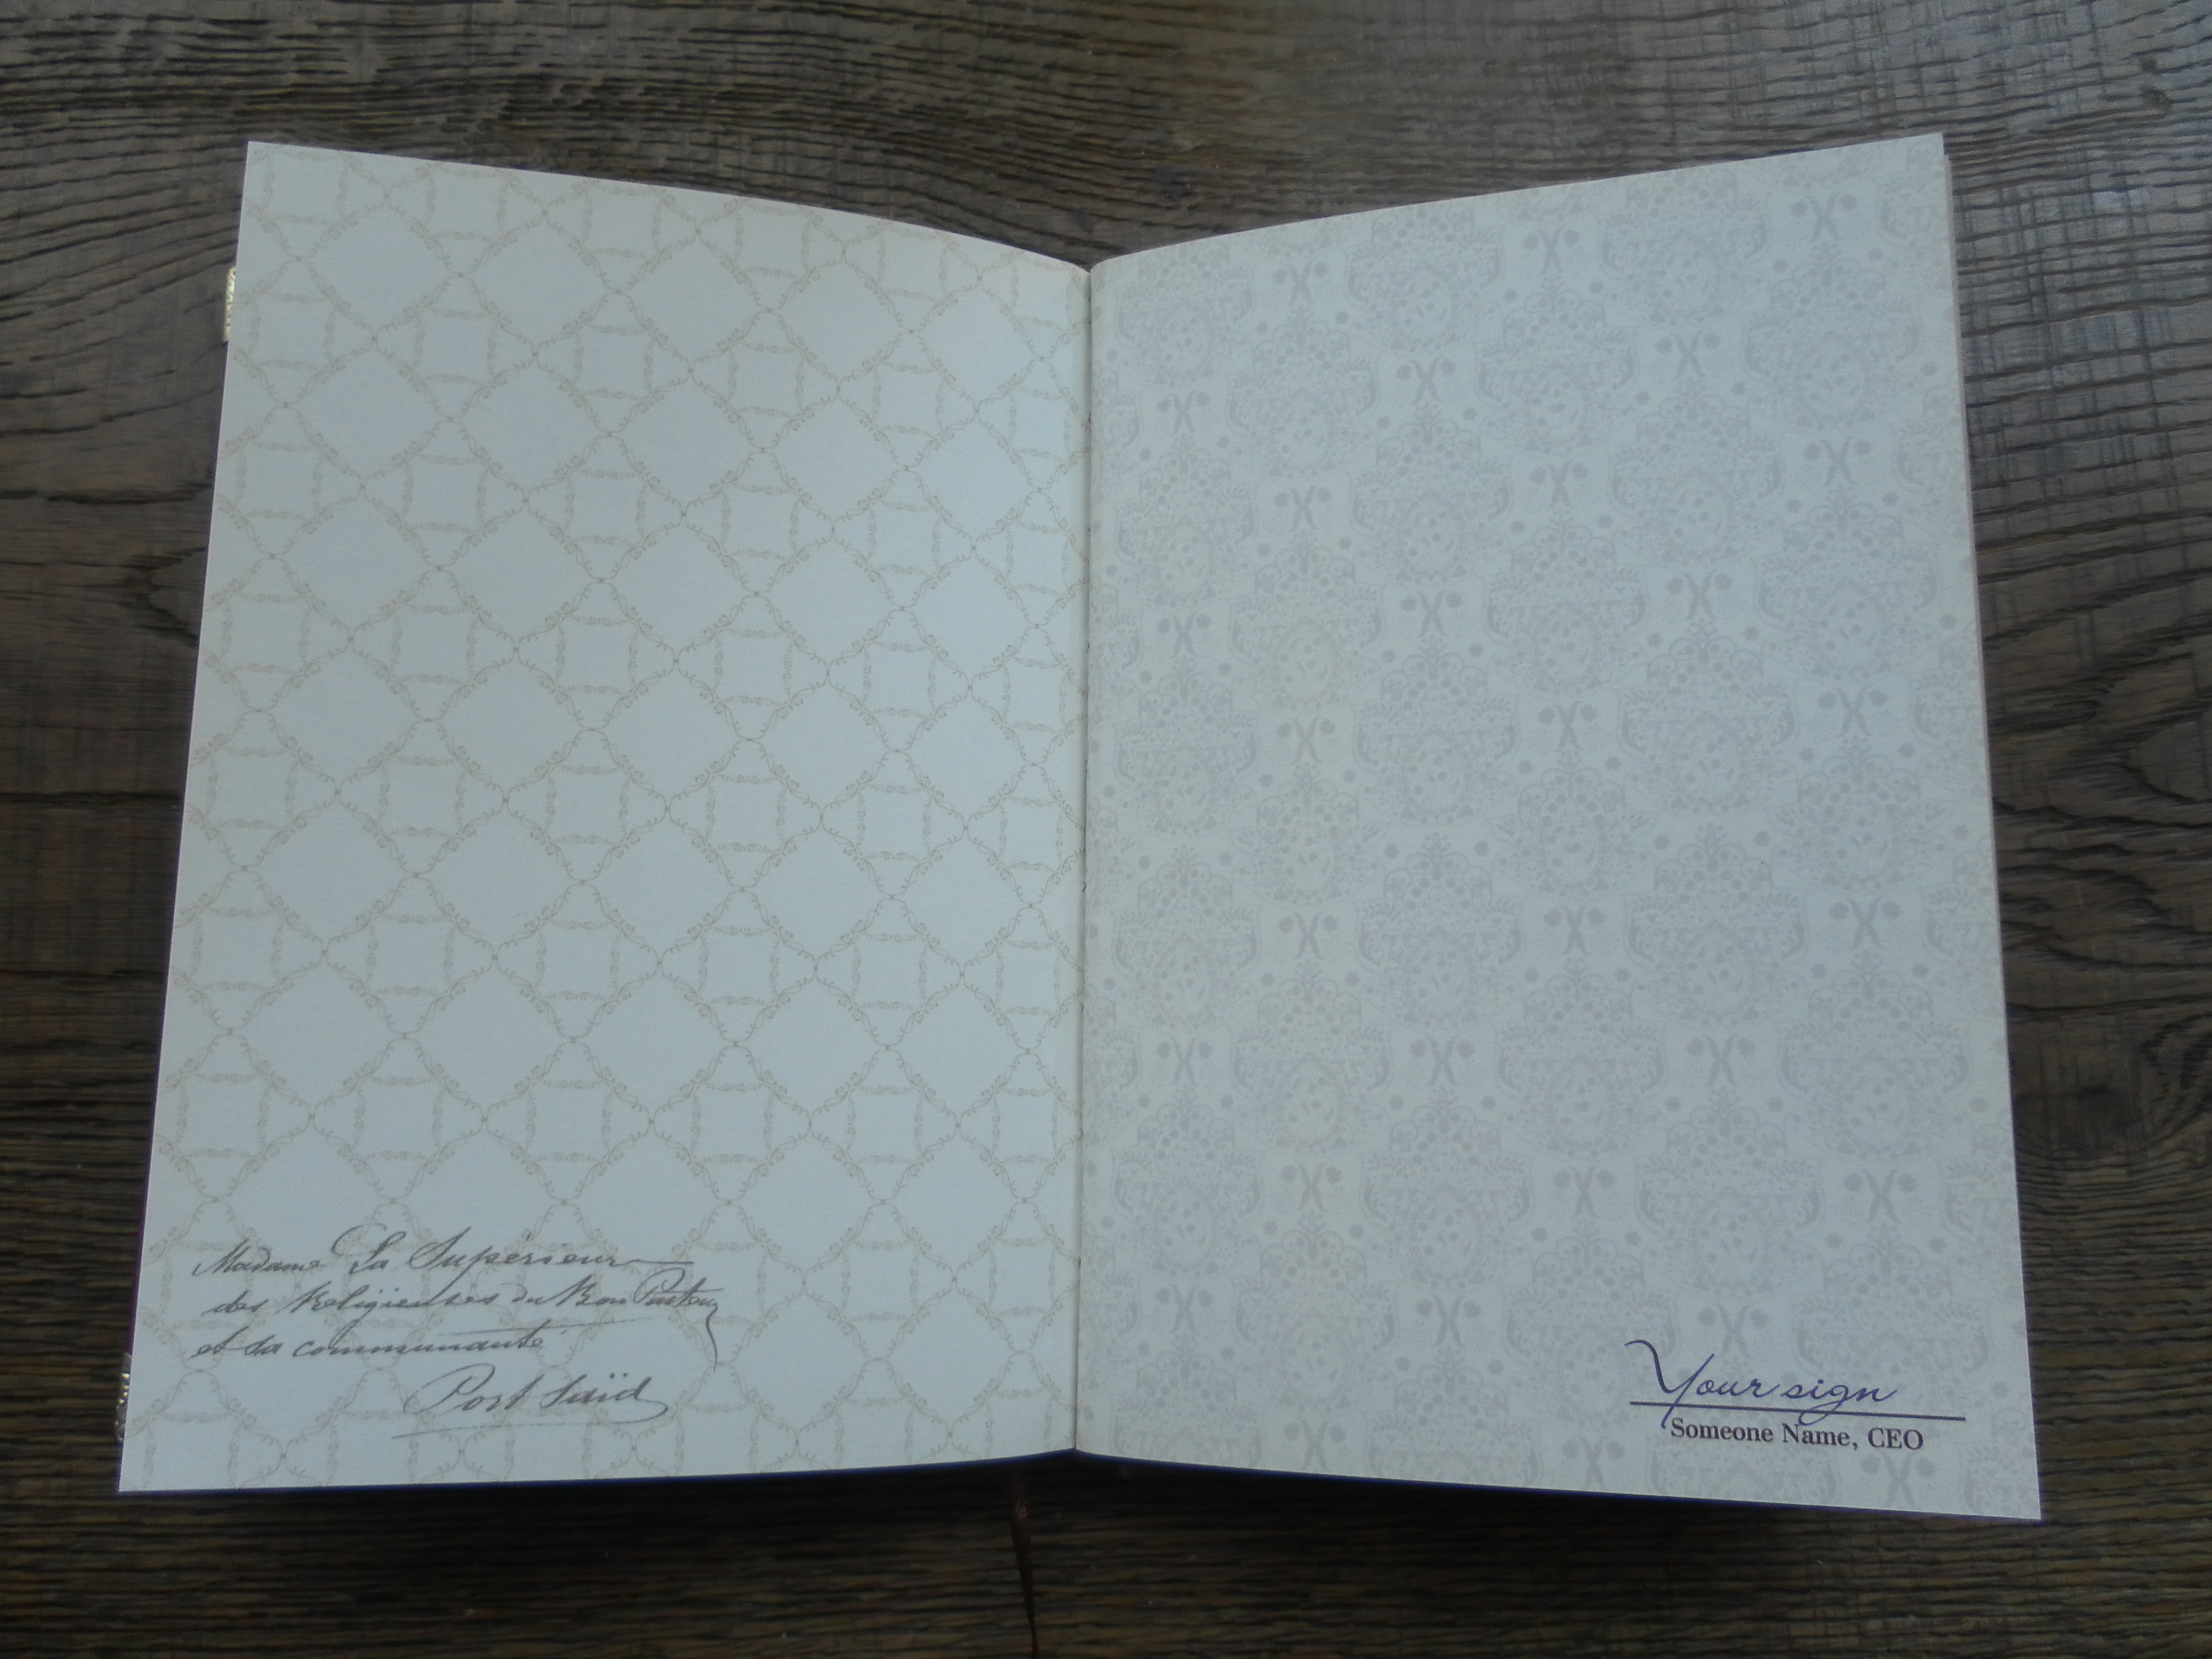 Madame La Supérieur
des Religieuses du Bon Pasteur
et sa communauté
Port Saïd
Your sign
Someone Name, CEO